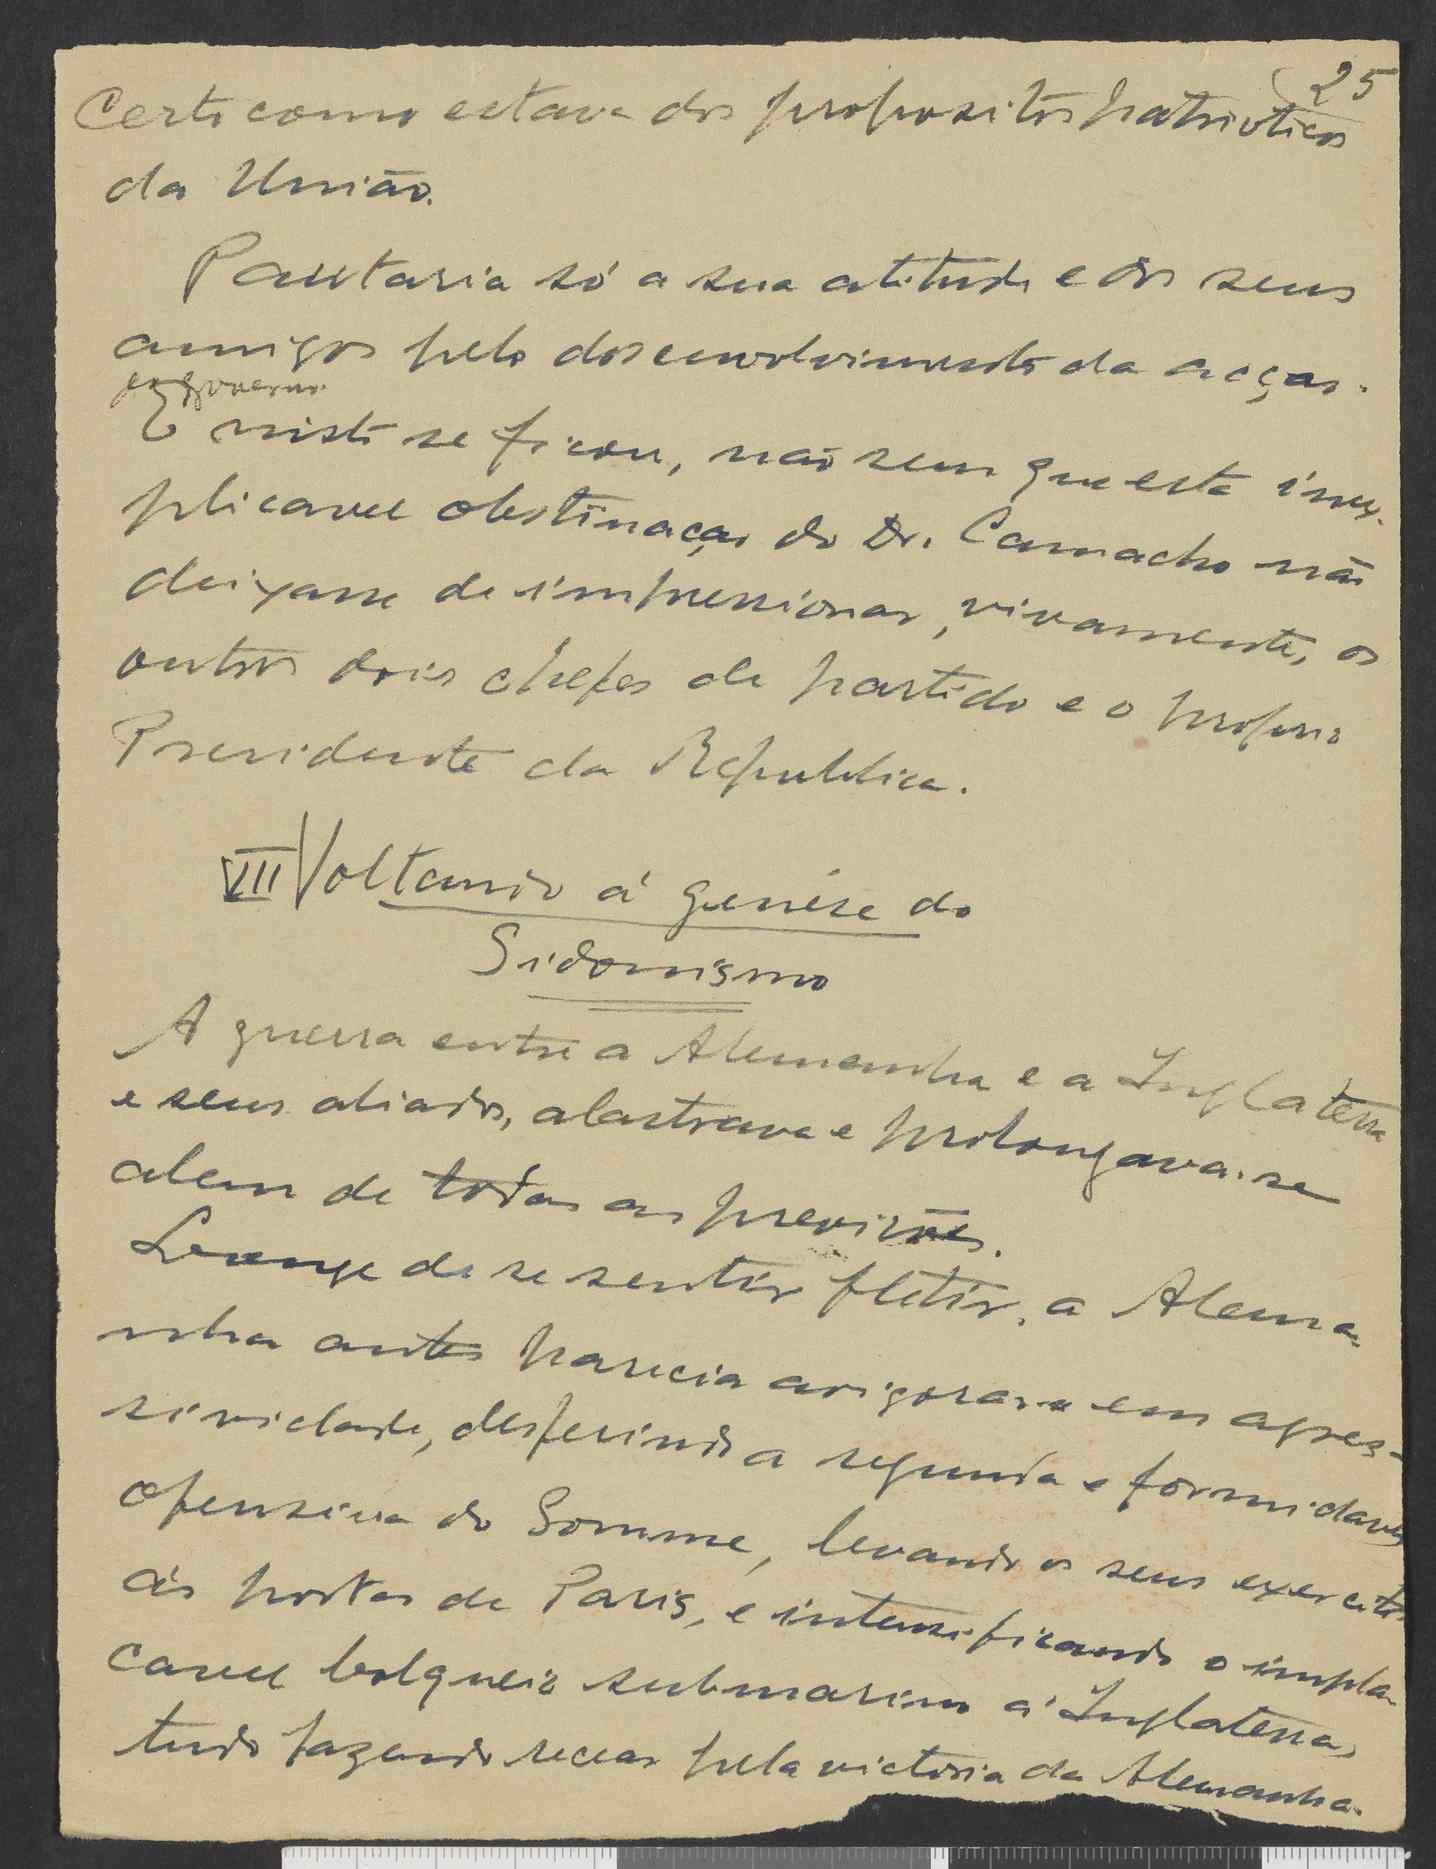 25
Certo como estava dos propositos patrioticos
da União.
Pautaria só a sua atitude e dos seus
amigos pelo desenvolvimento da acção.
do governo
E nisto se ficou, não sem que esta inex-
plicavel obstinação do Dr. Camacho não
deixasse de impressionar, vivamente, os
outros dois chefes de partido e o proprio
Presidente da Republica.
VII Voltando á genése do
Sidonismo
A guerra entre a Alemanha e a Inglaterra
e seus aliados, alastrava e prolongava-se
alem de todas as previsões.
Longe de se sentir fletir, a Alema-
nha antes parecia avigorar-se em agres-
sividade, desferindo a segunda e formidavel
ofensiva do Somme, levando os seus exercitos
ás portas de Paris, e intensificando o impla-
cavel bolqueio submarino á Inglaterra,
tudo fazendo recear pela victoria da Alemanha.